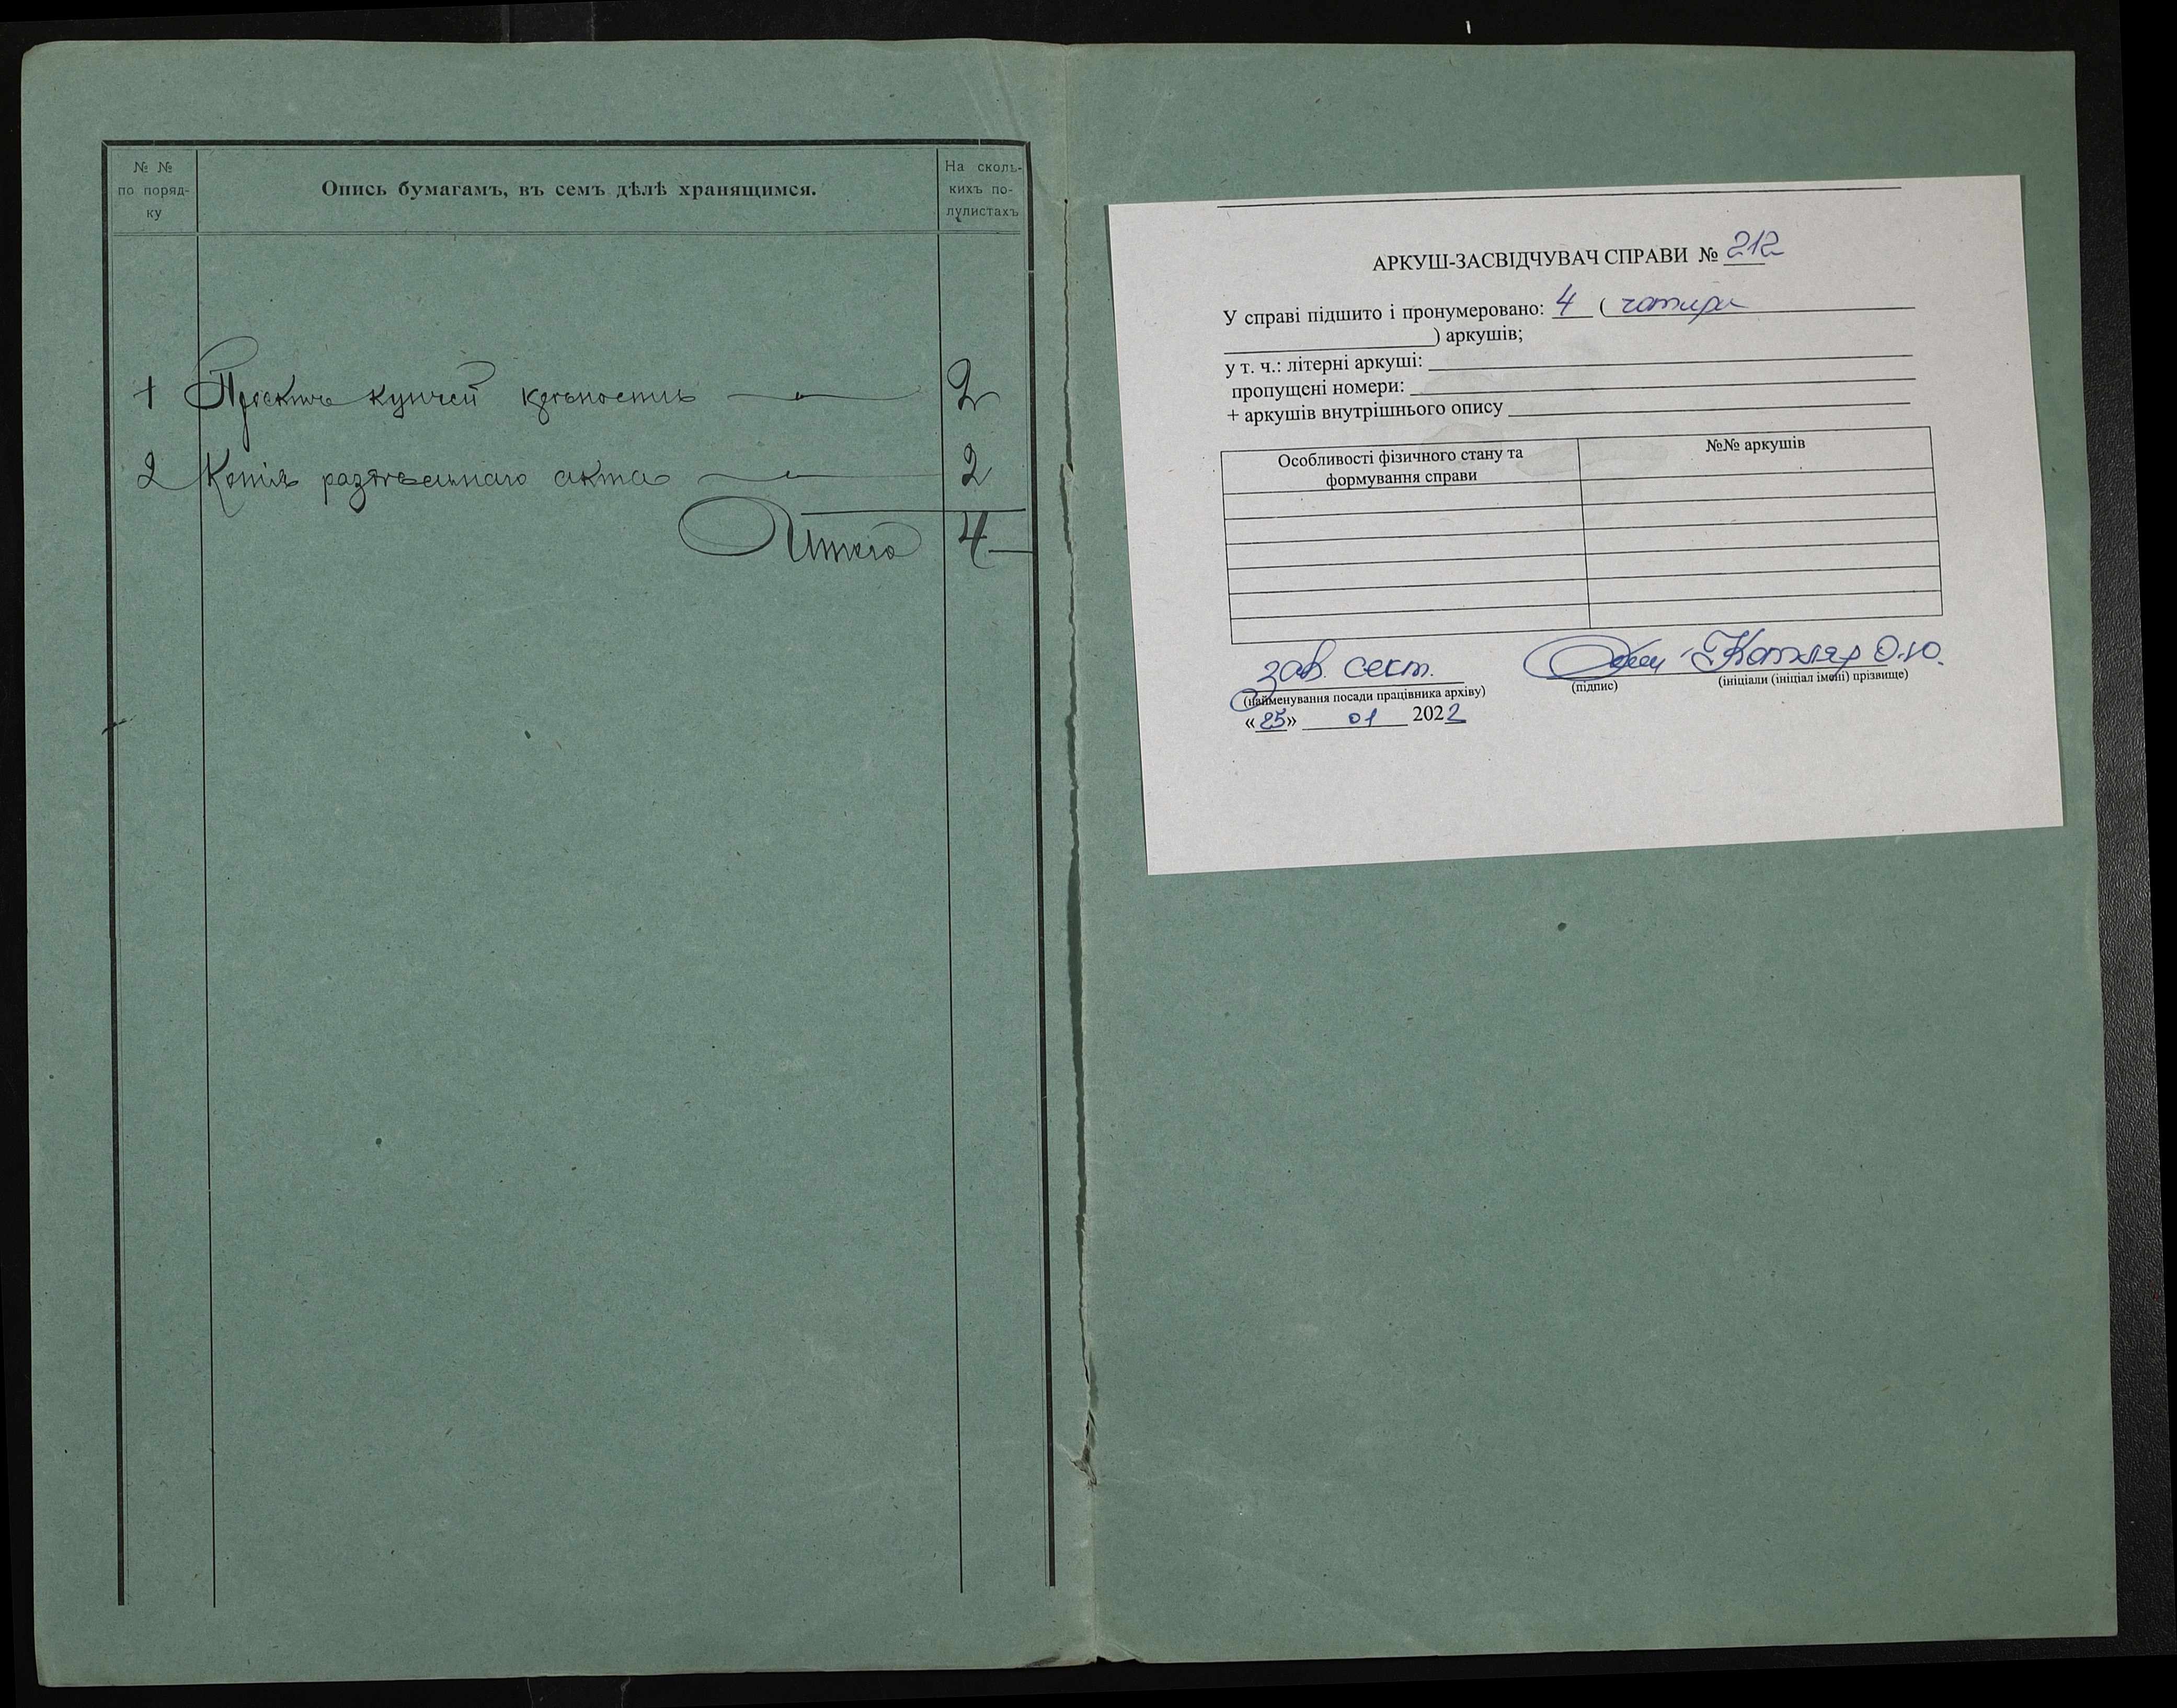 № №
по поряд-
ку
Опись бумагамъ, въ семъ дѣлѣ хранящимся.
На сколь-
кихъ по-
лулистахъ
1 Проектъ купчей крѣпости 2
2 Копія раздѣльнаго акта 2
Итого 4
АРКУШ-ЗАСВІДЧУВАЧ СПРАВИ № 212
У справі підшито і пронумеровано: 4 ( чотири
) аркушів;
у т. ч.: літерні аркуші:
пропущені номери:
+ аркушів внутрішнього опису
Особливості фізичного стану та
формування справи
№№ аркушів
зав. сект. Котляр О.Ю.
(найменування посади працівника архіву) (підпис) (ініціали (ініціал імені) прізвище)
« 25 » 01 2022